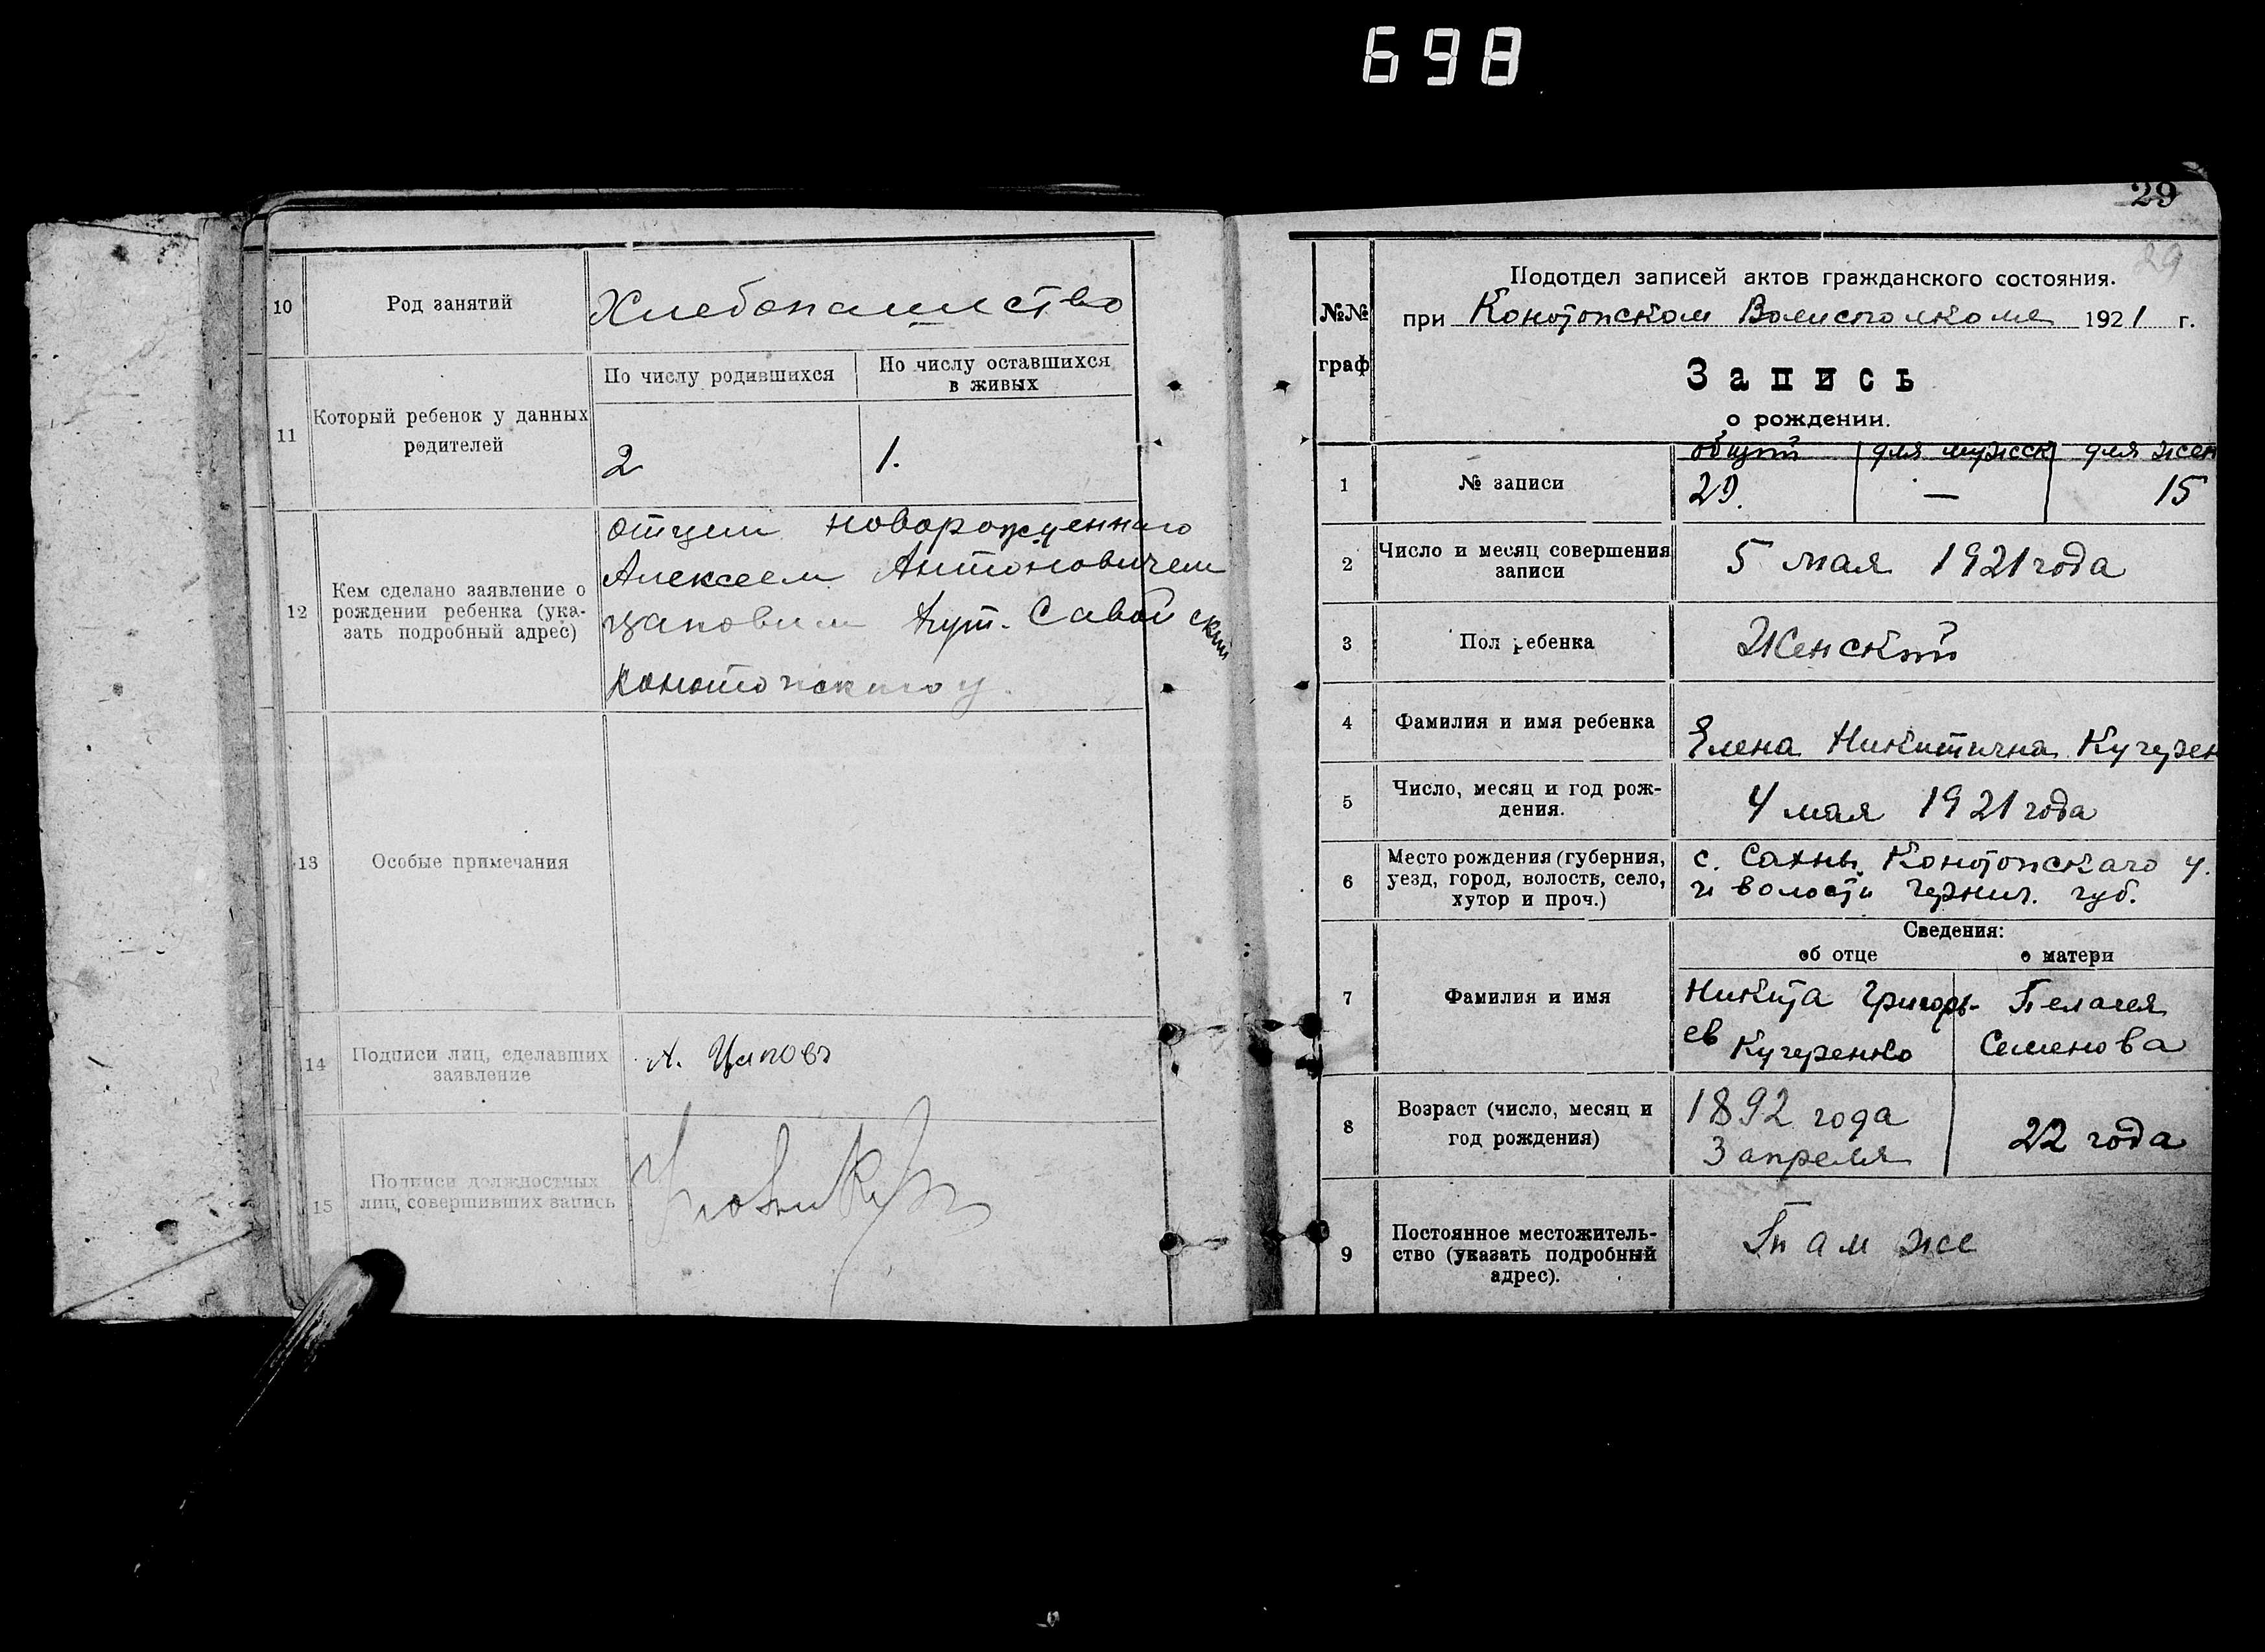 698
10
Род занятий
Хлебопашество
11
Который ребенок у данных
родителей
По числу родившихся
По числу оставшихся
в живых
2
1.
12
Кем сделано заявление о
рождении ребенка (ука-
зать подробный адрес)
отцем новорожденнаго
Алексеем Антоновичем
Цаповым хут. Савойский
Конотопскаго у.
13
Особые примечания
14
Подписи лиц, сделавших
заявление
А. Цаповъ
15
Подписи должностных
лиц, совершивших запись
29
29
№№
граф
Подотдел записей актов гражданского состояния.
при Конотопском Волисполкоме 1921 г.
Запись
о рождении.
1
№ записи
общий для мужск для жен
29. — 15
2
Число и месяц совершения
записи
5 мая 1921 года
3
Пол ребенка
Женский
4
Фамилия и имя ребенка
Елена Никитична Кучерен
5
Число, месяц и год рож-
дения.
4 мая 1921 года
6
Место рождения (губерния,
уезд, город, волость, село,
хутор и проч.)
с. Сахны Конотопскаго у.
и волости Черниг. губ.
Сведения:
об отце
о матери
7
Фамилия и имя
Никита Григорь-
ев
Кучеренко
Пелагея
Семенова
8
Возраст (число, месяц и
год рождения)
1892 года
3 апреля
22 года
9
Постоянное местожитель-
ство (указать подробный
адрес).
Там же